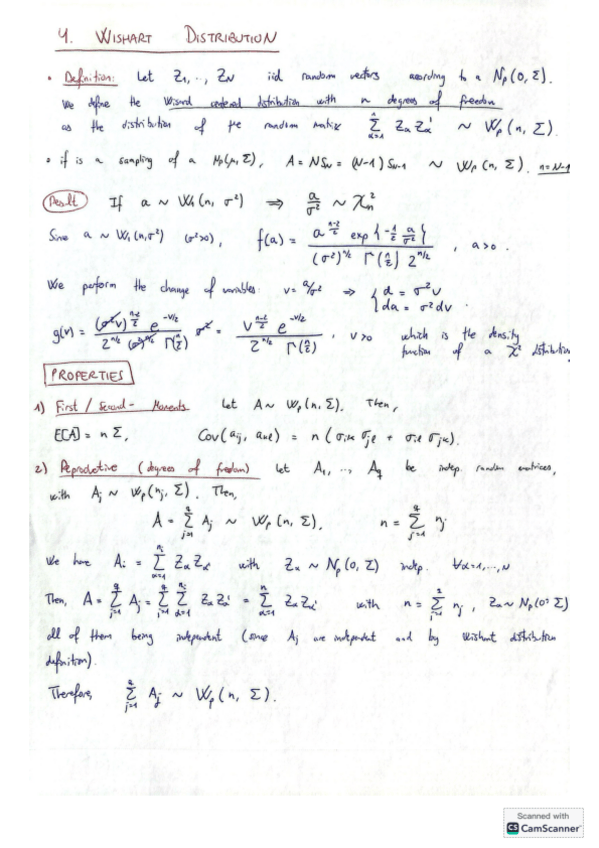 4. WISHART DISTRIBUTION
• Definition: Let Z₁, .., Z_N iid random vectors according to a N_p(0, Σ).
We define the centered distribution with n degrees of freedom
as the distribution of the random matrix Σ_{α=1}^{n} Z_α Z_α' ~ W_p(n, Σ).
• if is a sampling of a N_p(μ, Σ), A = N S_N = (N-1) S_{N-1} ~ W_p(n, Σ). n = N-1
Result If a ~ W₁(n, σ²) ⟹ a/σ² ~ χ_n²
Since a ~ W₁(n, σ²) (σ²>0), f(a) = a^{(n-2)/2} exp{-1/2 a/σ²} / ((σ²)^{n/2} Γ(n/2) 2^{n/2}), a>0.
We perform the change of variables: v = a/σ² ⟹ { a = σ²v
da = σ²dv.
g(v) = (σ²v)^{(n-2)/2} e^{-v/2} / (2^{n/2} (σ²)^{n/2} Γ(n/2)) σ² = v^{(n-2)/2} e^{-v/2} / (2^{n/2} Γ(n/2)), v>0 which is the density
function of a χ² distribution
PROPERTIES
1) First / Second - Moments Let A ~ W_p(n, Σ). Then,
E[A] = n Σ, Cov(a_ij, a_kl) = n (σ_ik σ_jl + σ_il σ_jk).
2) Reproductive (degrees of freedom) Let A₁, .., A_q be indep. random matrices,
with A_j ~ W_p(n_j, Σ). Then,
A = Σ_{j=1}^{q} A_j ~ W_p(n, Σ), n = Σ_{j=1}^{q} n_j
We have A_i = Σ_{α=1}^{n_i} Z_α Z_α' with Z_α ~ N_p(0, Σ) indep. ∀α=1,..,N
Then, A = Σ_{j=1}^{q} A_j = Σ_{j=1}^{q} Σ_{α=1}^{n_j} Z_α Z_α' = Σ_{α=1}^{n} Z_α Z_α' with n = Σ_{j=1}^{q} n_j, Z_α ~ N_p(0, Σ)
all of them being independent (since A_j are indepndent and by Wishart distribution
definition).
Therefore, Σ_{j=1}^{q} A_j ~ W_p(n, Σ).
Scanned with
CS CamScanner